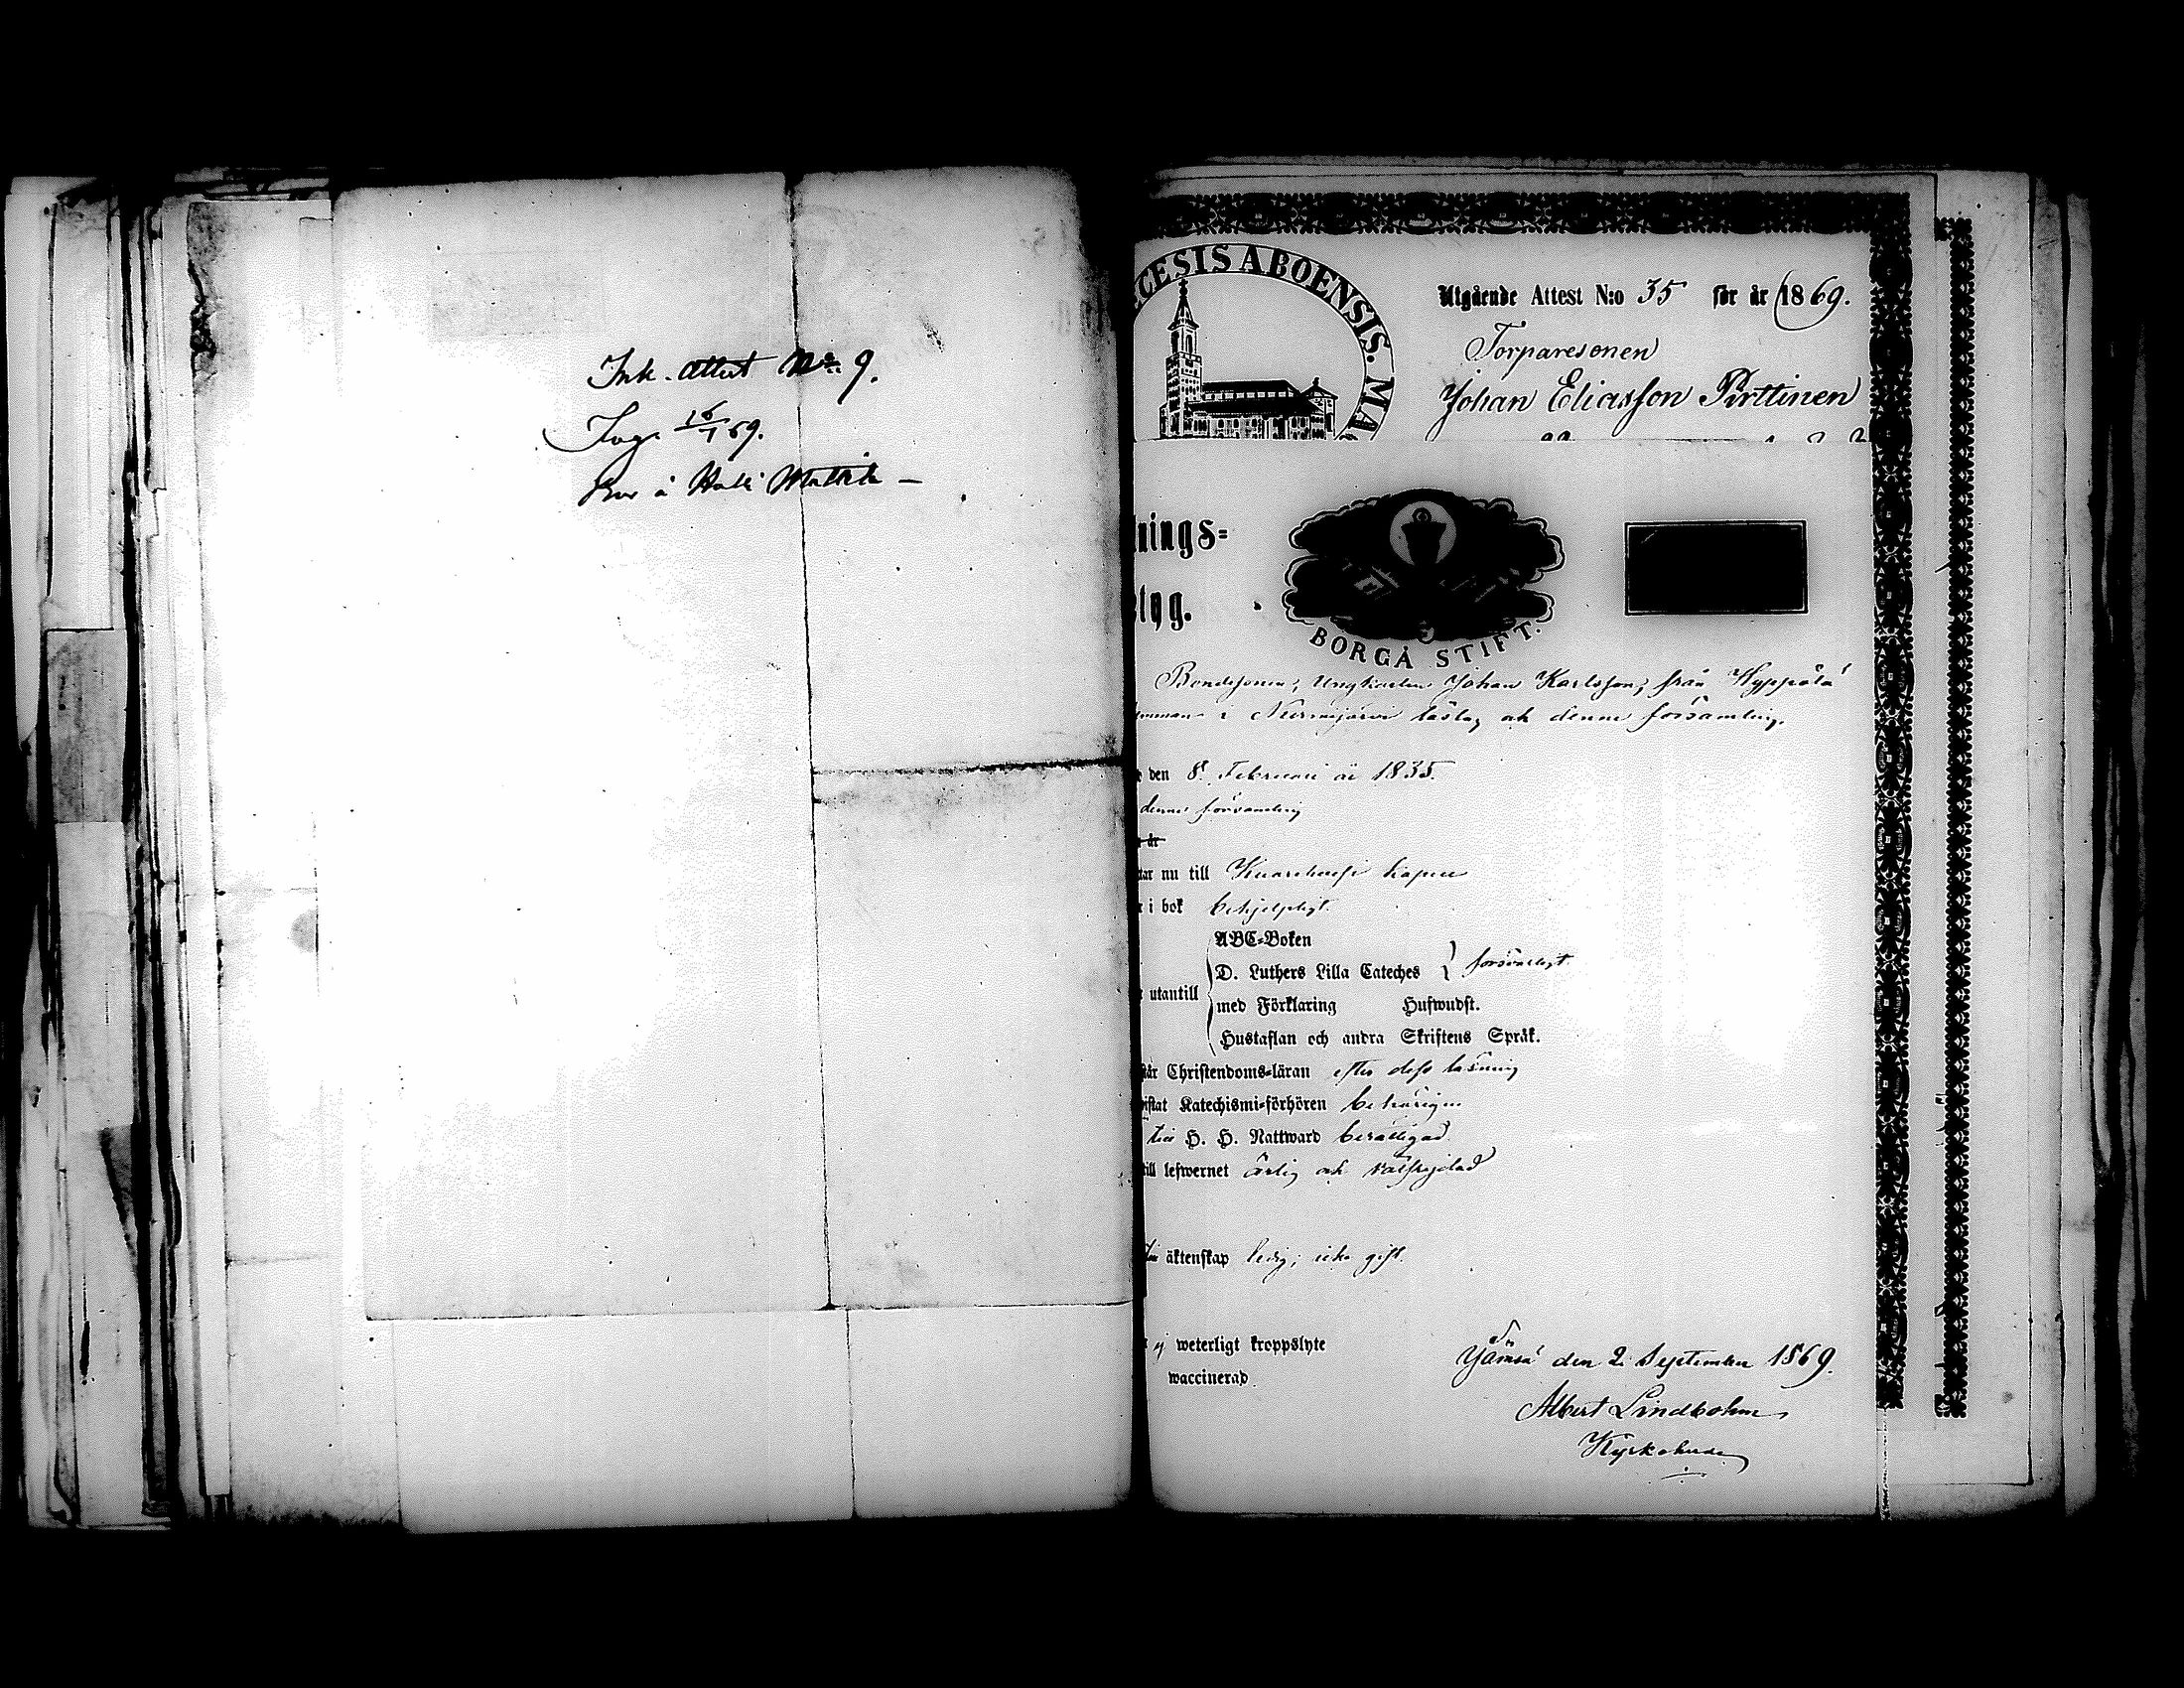 Ink. Attest No 9.
16/1 69.
DIŒCESIS ABOENSIS. MA
Utgående Attest N:o 35 för år 1869.
Torparesonen
Johan Eliasson Pirttinen
nings=
tyg.
BORGÅ STIFT.
Bondesonen, Ungkarlen Johan Karlsson, från Hyppölä
hemman i Nurmijärvi låslag och denna församling.
den 8. Februari år 1835.
denna församling
år
tar nu till Kuorehvesi kapell
i bok behjelpligt.
ABC=Boken
D. Luthers Lilla Cateches } försvarligt.
utantill
med Förklaring Hufwudst.
Hustaflan och andra Skriftens Språk.
står Christendoms=läran efter dess läsning
wistat Katechismi=förhören behörigen
till H. H. Nattward berättigad.
till lefwernet ärlig och välfrejdad
till äktenskap ledig; icke gift.
ej weterligt kroppslyte
waccinerad.
Jämsä den 2. September 1869.
Albert Lindbohm
Kyrkoherde